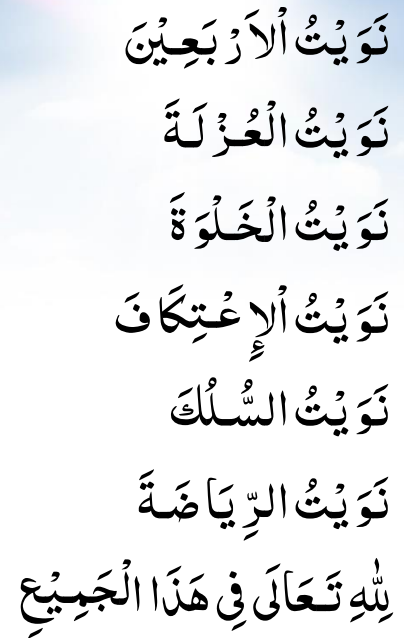 نَوَيْتُ اْلاَرْبَعِيْنَ
نَوَيْتُ الْعُزْلَةَ
نَوَيْتُ الْخَلْوَةَ
نَوَيْتُ اْلإِعْتِكَافَ
نَوَيْتُ السُّلُكَ
نَوَيْتُ الرِّيَاضَةَ
لِلّٰهِ تَعَالَى فِى هَذَا الْجَمِيْعِ